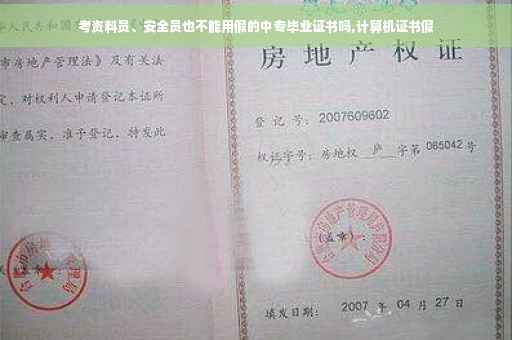 考资料员、安全员也不能用假的中专毕业证书吗,计算机证书假
人民共和国
市房地产管理法》及有关法
定，对权利人申请登记本证所
审查属实，准予登记，特发此
房地产权证
登记号：2007609602
权证字号：房地权 庐 字第 065042 号
(盖章)：
填发日期：2007 年 04 月 27 日